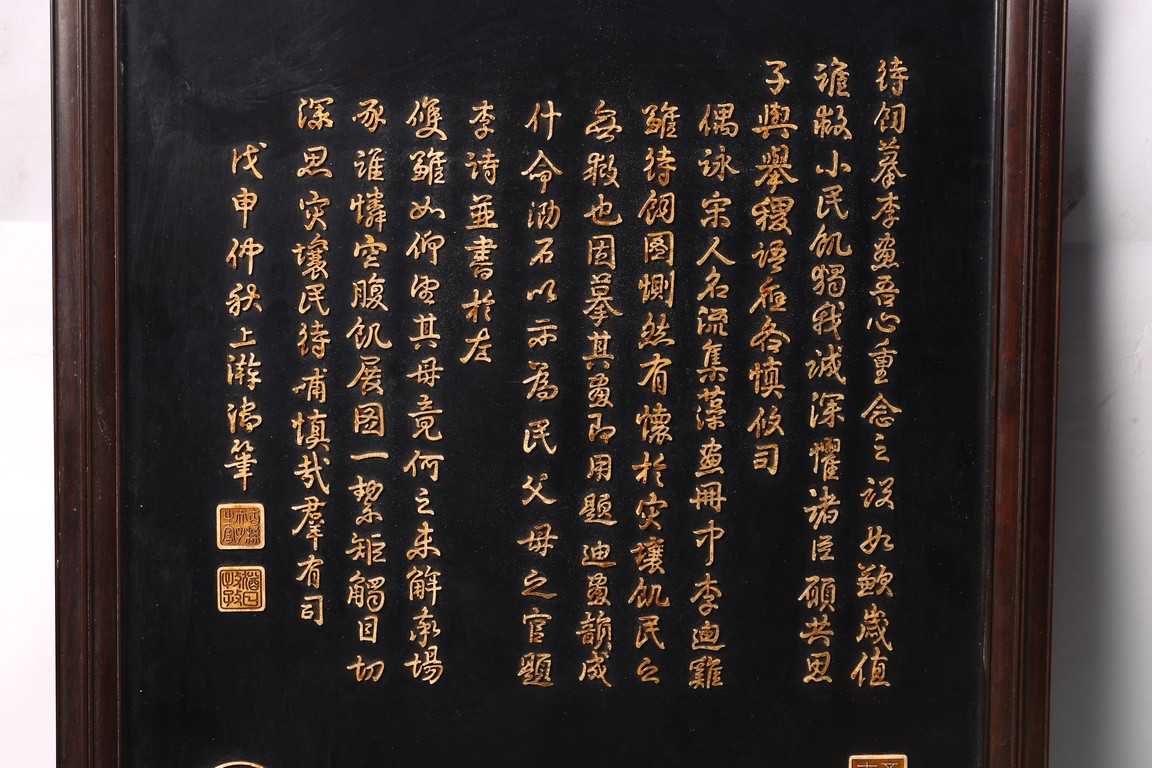 待飼摹李畫吾心重念之設如歉歲值
誰救小民飢獨我誠深懼諸臣願共思
子輿舉稷語應各慎攸司
偶詠宋人名流集藻畫冊中李迪雞
雛待飼圖惻然有懷於灾壤飢民之
無救也因摹其畫即用題迪畫韻成
什命泐石以示為民父母之官題
李詩並書於左
雙雛如仰望其母竟何之未解率場
啄誰憐空腹飢展图一絜矩觸目切
深思灾壤民待哺慎哉羣有司
戊申仲秋上澣御筆
猶日孜孜